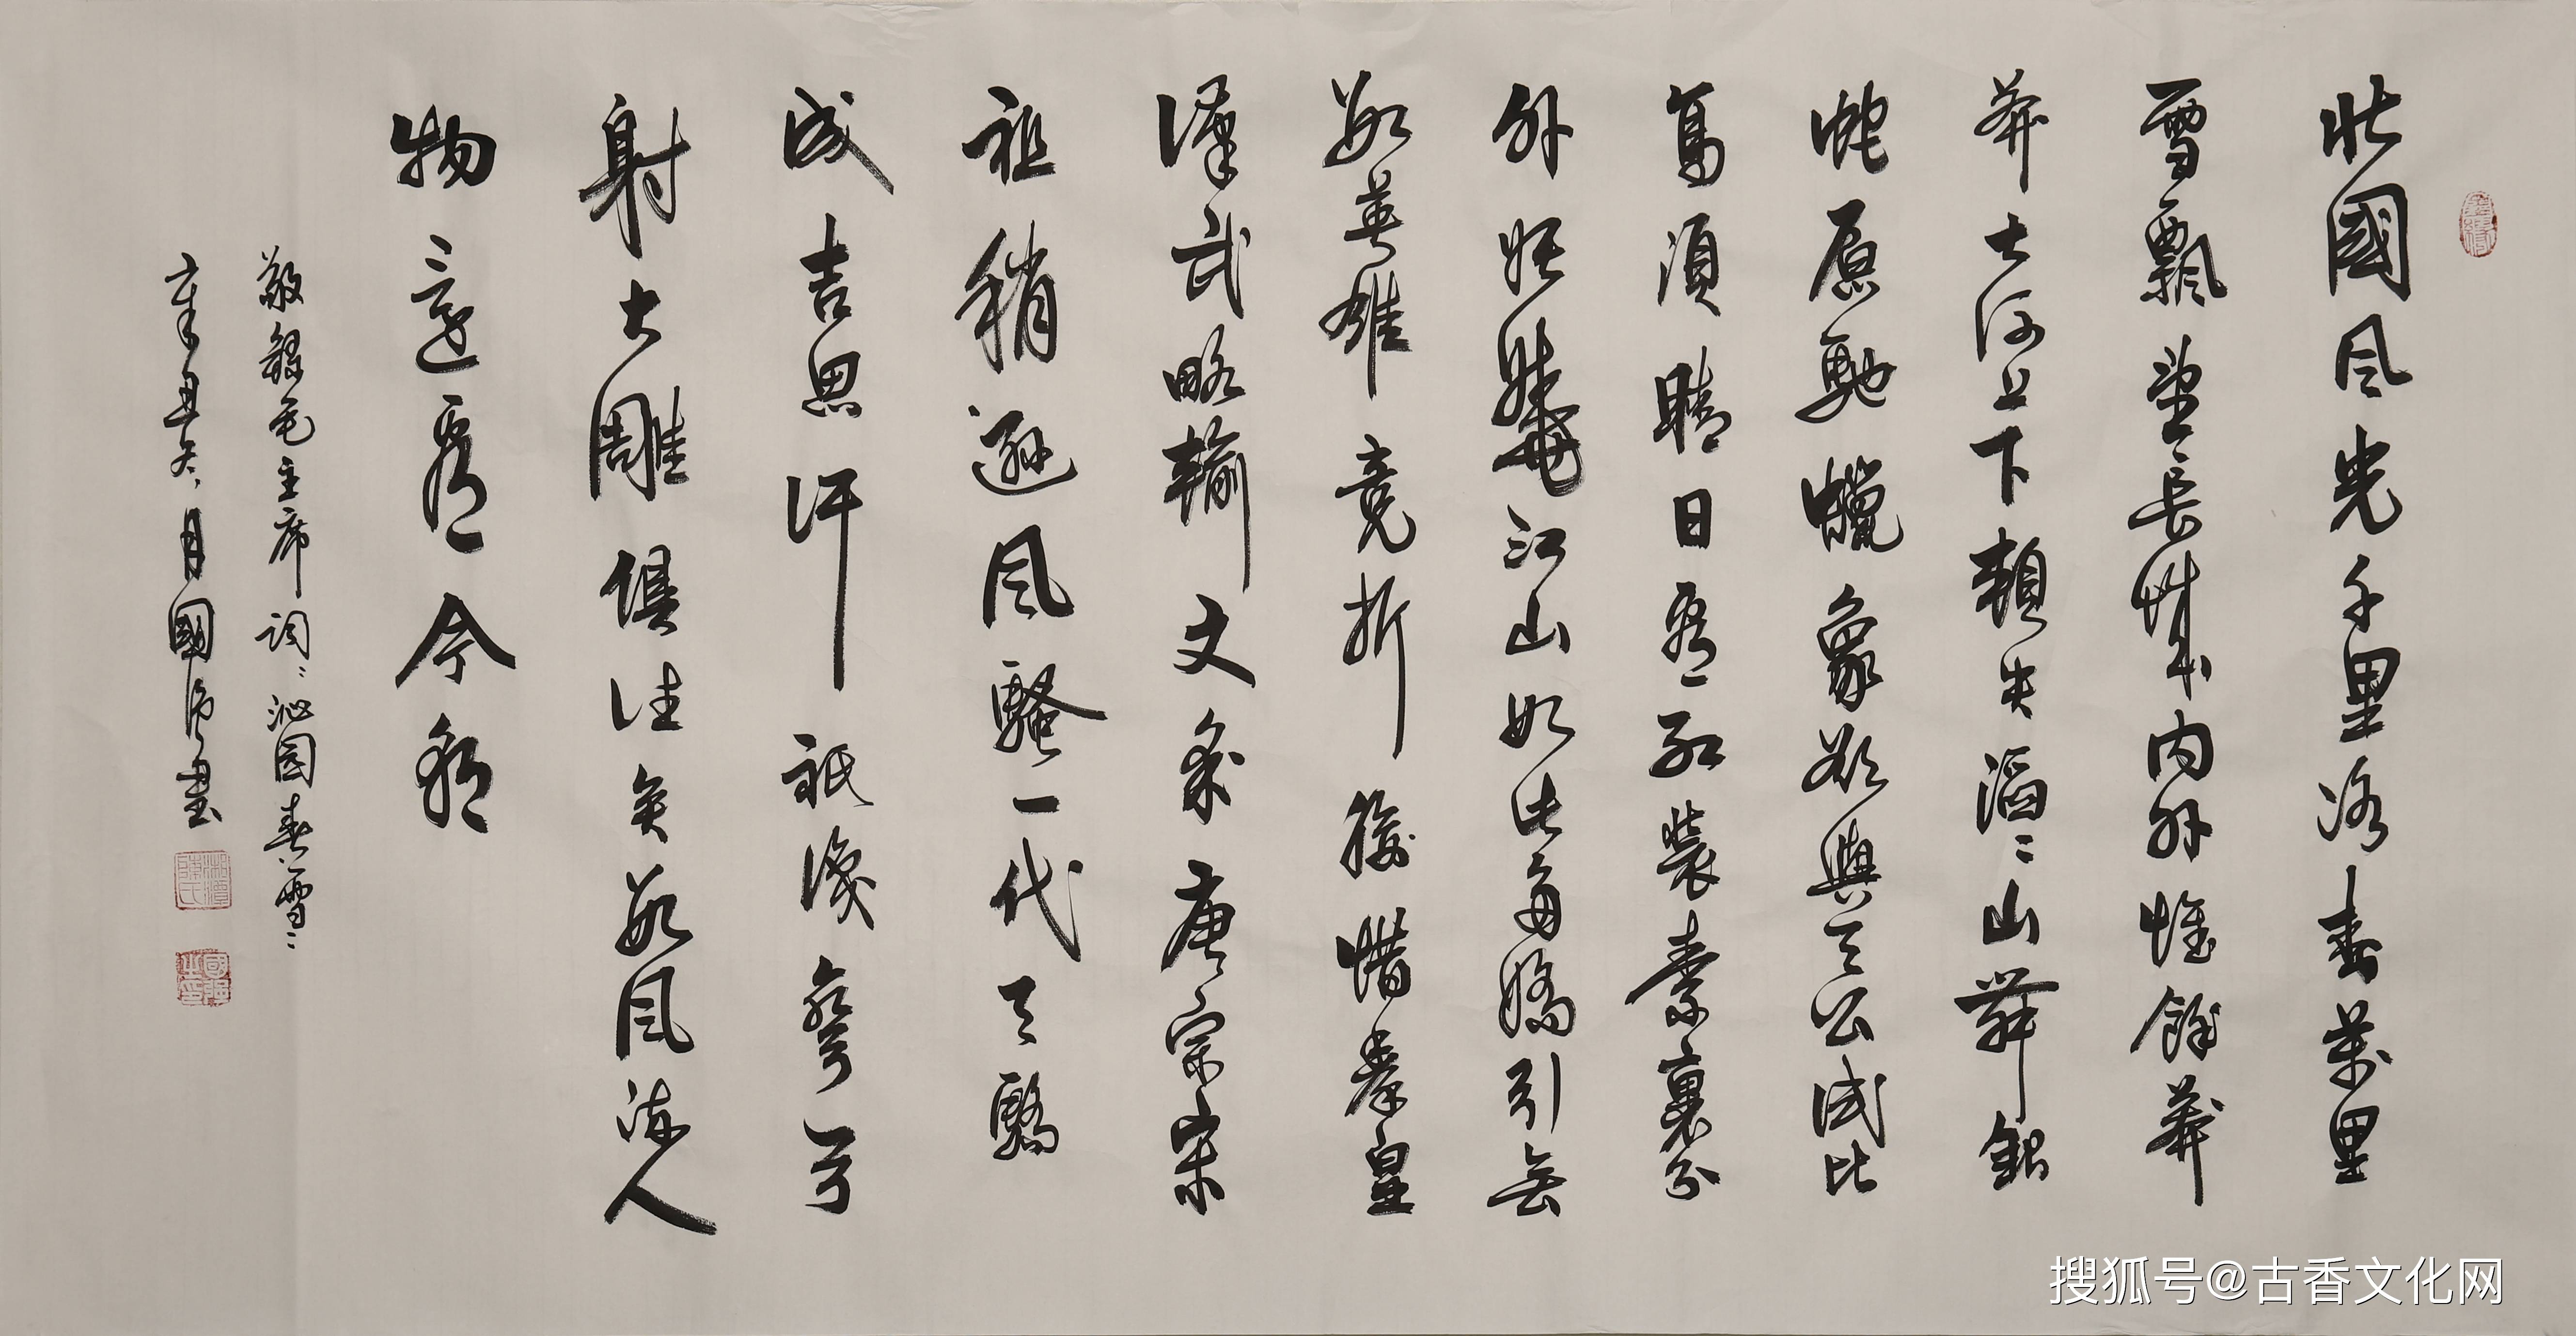 北國风光千里冰封萬里
雪飄望長城内外惟餘莽
莽大河上下頓失滔滔山舞銀
蛇原馳蠟象欲與天公試比
高須晴日看红裝素裹分
外妖嬈江山如此多嬌引無
數英雄竞折腰惜秦皇
漢武略輸文采唐宗宋
祖稍遜風騷一代天驕
成吉思汗祇識彎弓
射大雕俱往矣數風流人
物還看今朝
敬録毛主席詞沁园春雪
辛丑冬月國强書
湘潭陳氏
國强之印
搜狐号@古香文化网